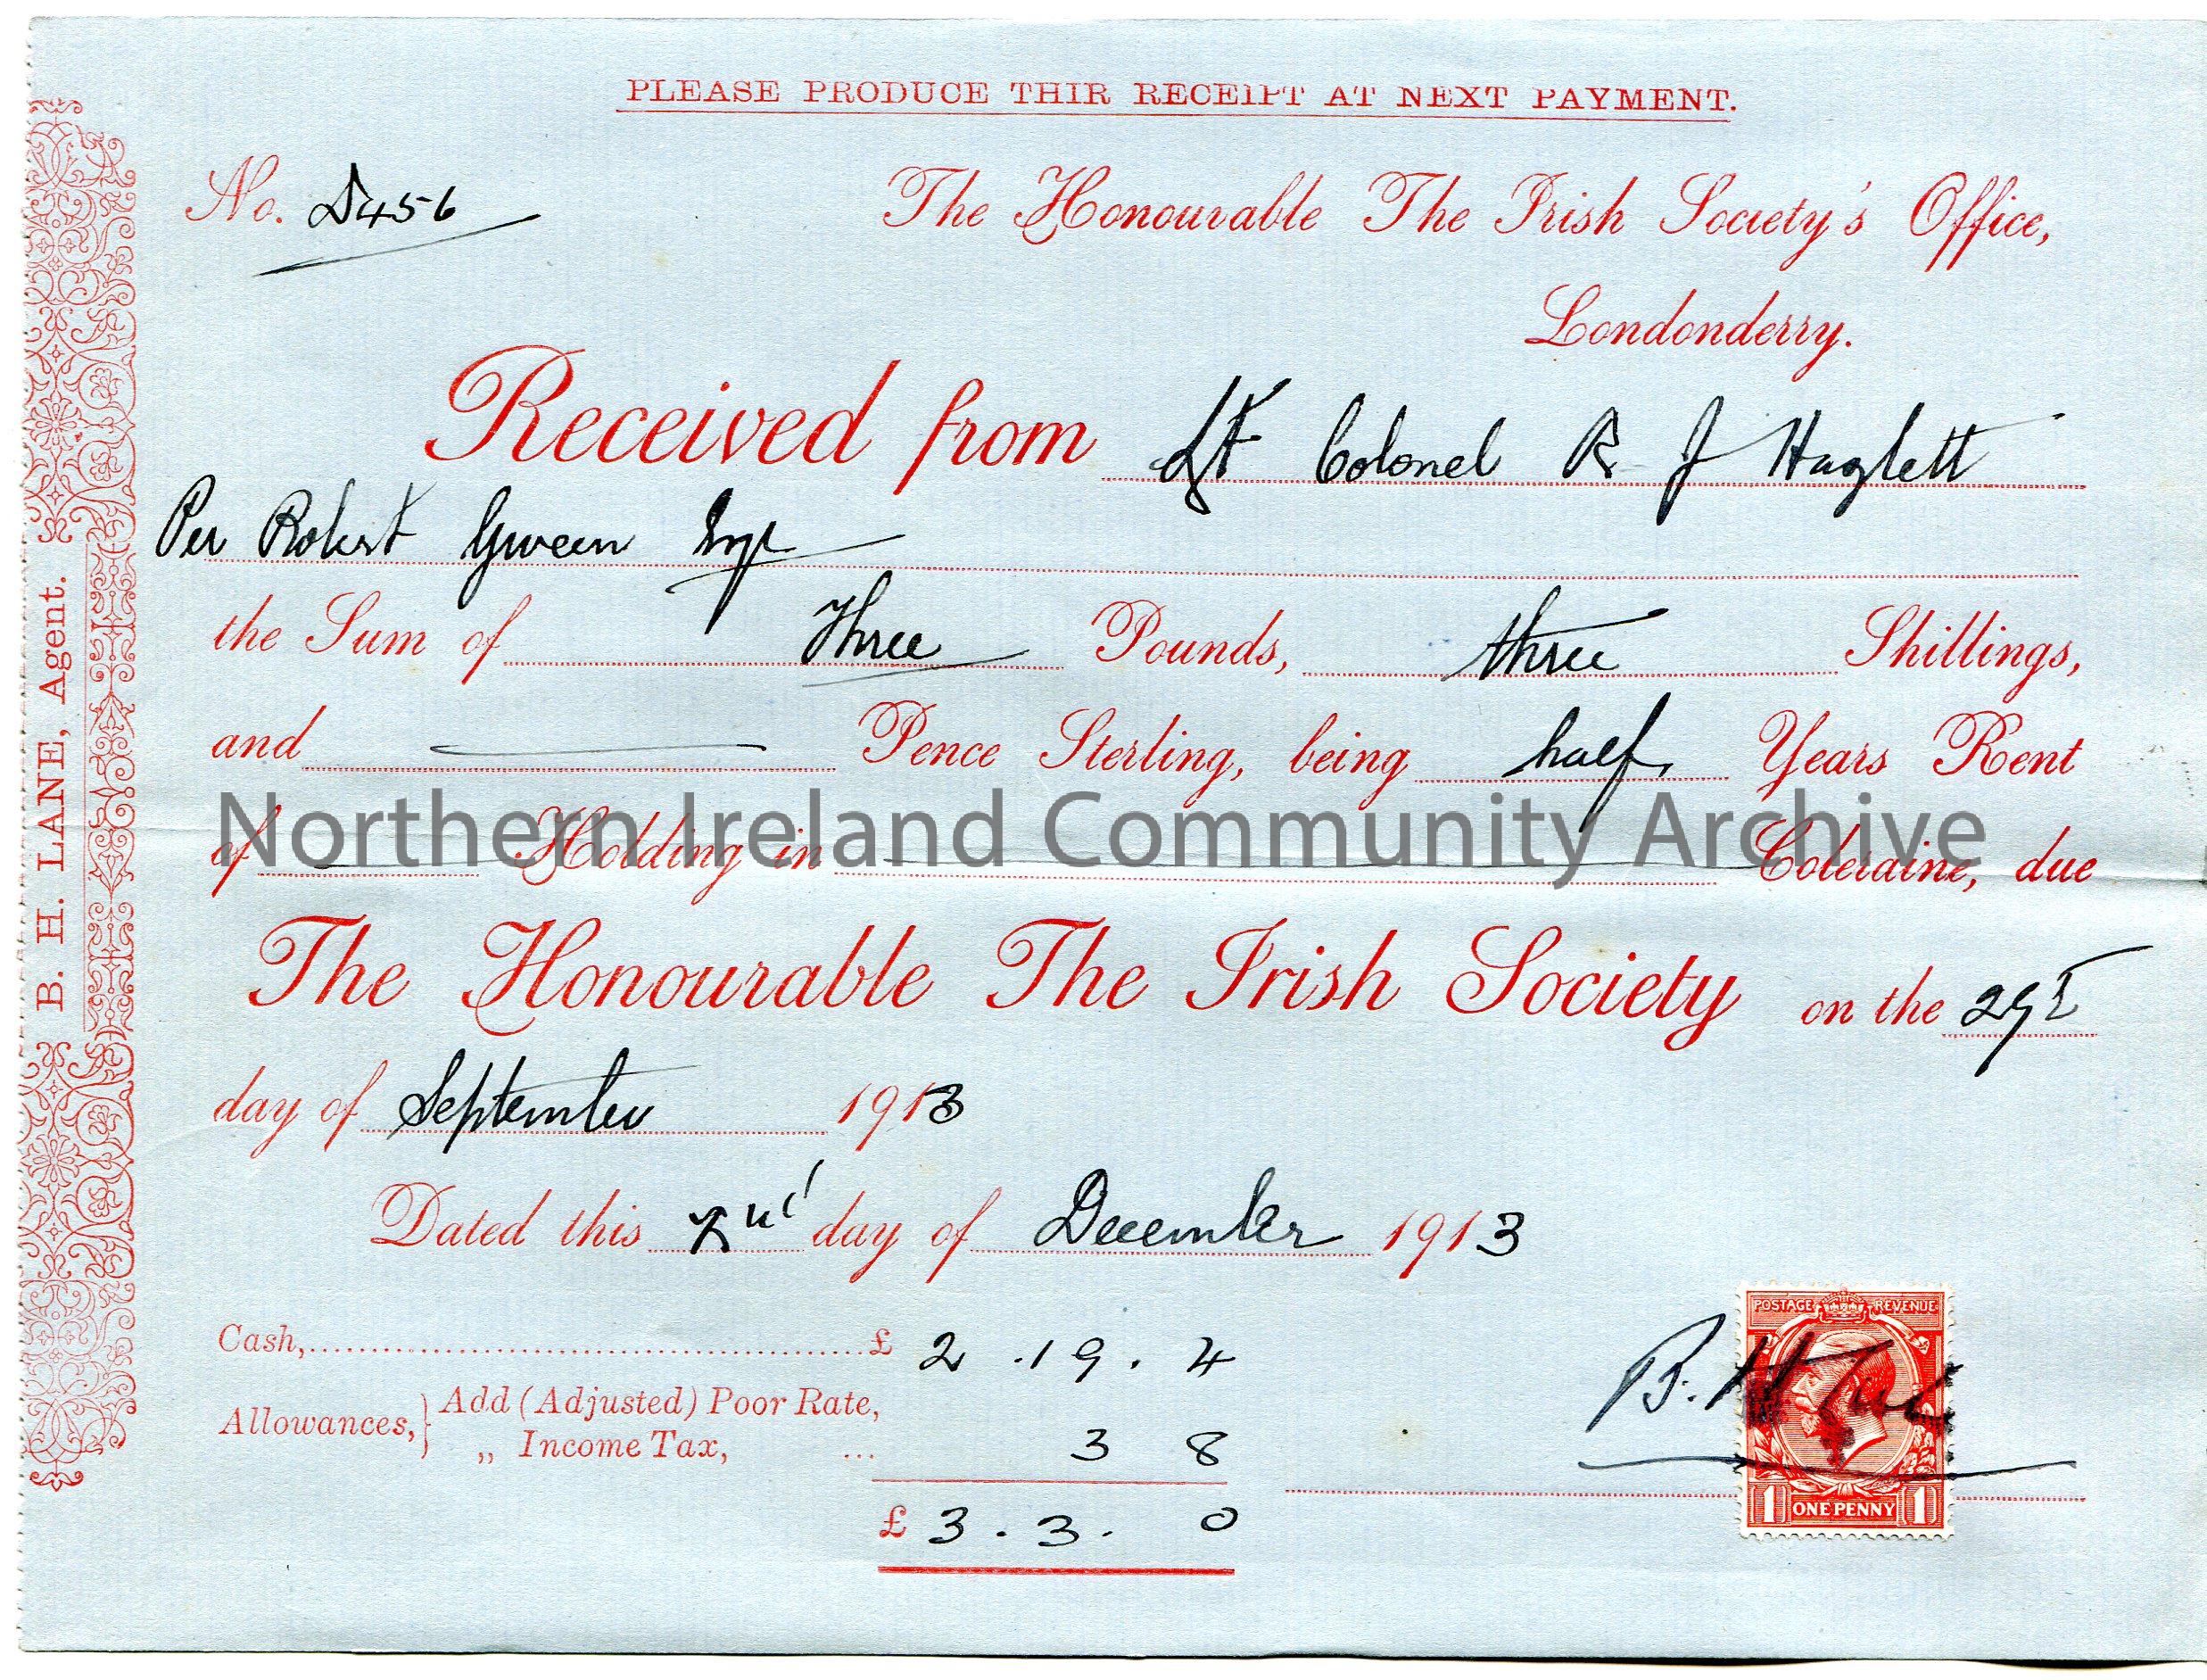 PLEASE PRODUCE THIR RECEIPT AT NEXT PAYMENT.
No. D456
The Honourable The Irish Society's Office,
Londonderry.
Received from Lt Colonel R J Hazlett
Per Robert Gween Esqr
the Sum of Three Pounds, three Shillings,
and Pence Sterling, being half Years Rent
of Holding in Coleraine, due
Northern Ireland Community Archive
The Honourable The Irish Society on the 29t
day of September 1913
Dated this day of December 1913
Cash, £ 2 . 19 . 4
Allowances, } Add (Adjusted) Poor Rate,
„ Income Tax, ... 3 8
£ 3 . 3 . 0
B. H. Lane
POSTAGE REVENUE
1 ONE PENNY 1
B. H. LANE, Agent.